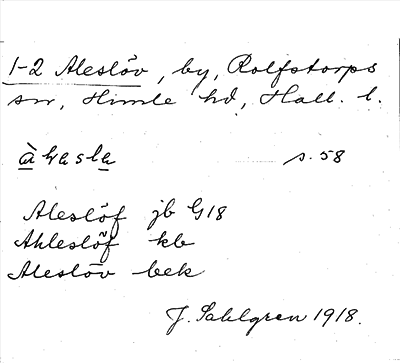 1-2 Aleslöv, by, Rolfstorps
sn, Himle hd, Hall. l.
s. 58
Aleslöf jb G18
Ahleslöf kb
Aleslöv bek
J. Sahlgren 1918.